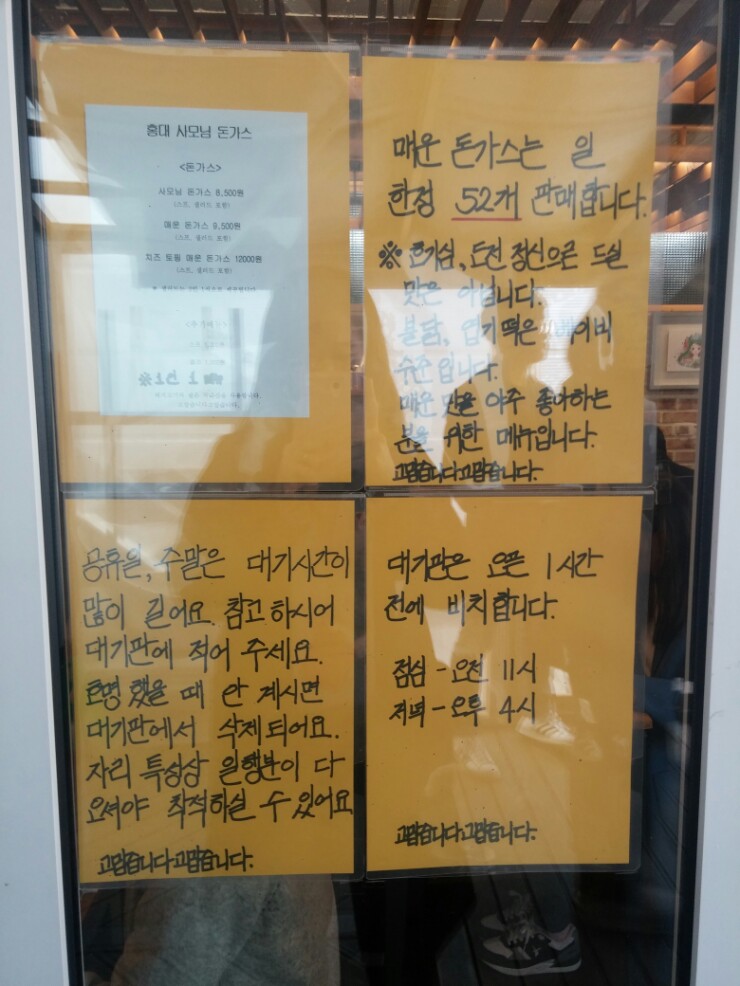 홍대 사모님 돈가스
<돈가스>
사모님 돈가스 8,500원
(스프, 샐러드 포함)
매운 돈가스 9,500원
(스프, 샐러드 포함)
치즈 토핑 매운 돈가스 12000원
(스프, 샐러드 포함)
매운 돈가스는 일
한정 52개 판매합니다.
※ 호기심, 도전 정신으로 드실
맛은 아닙니다.
불닭, 엽기떡은 베이비
수준입니다.
매운 맛을 아주 좋아하는
분을 위한 메뉴입니다.
고맙습니다고맙습니다.
공휴일, 주말은 대기시간이
많이 길어요. 참고하시어
대기판에 적어 주세요.
호명 했을 때 안 계시면
대기판에서 삭제되어요.
자리 특성상 일행분이 다
오셔야 착석하실 수 있어요
고맙습니다고맙습니다.
대기판은 오픈 1시간
전에 비치합니다.
점심 - 오전 11시
저녁 - 오후 4시
고맙습니다고맙습니다.